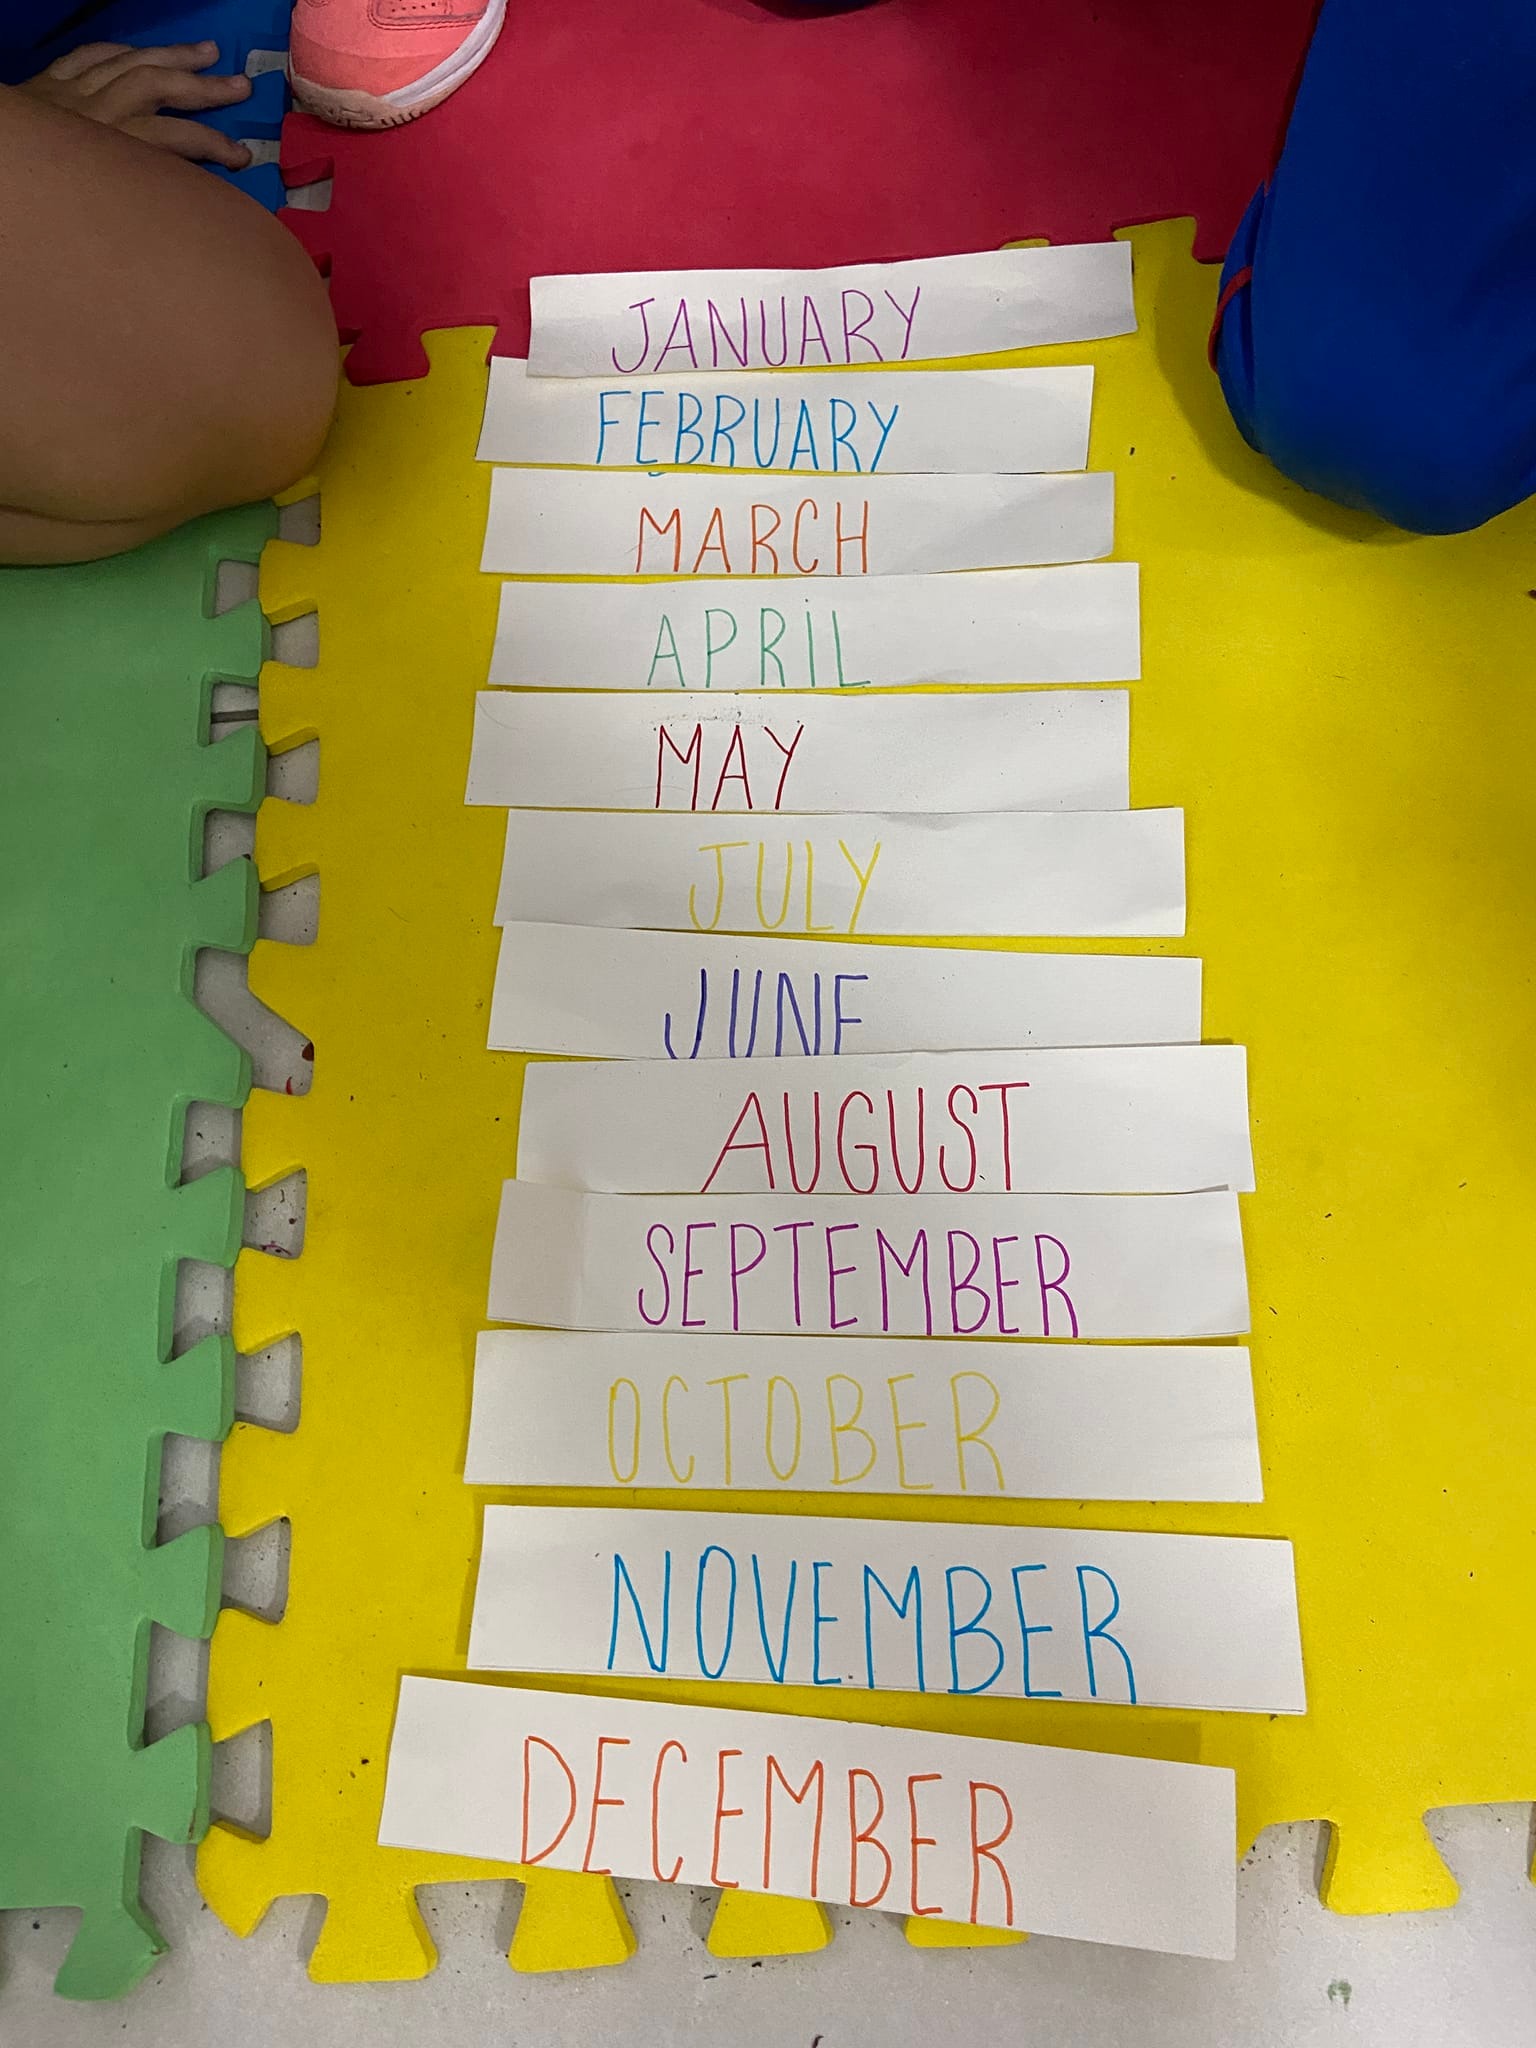 JANUARY
FEBRUARY
MARCH
APRIL
MAY
JULY
JUNE
AUGUST
SEPTEMBER
OCTOBER
NOVEMBER
DECEMBER